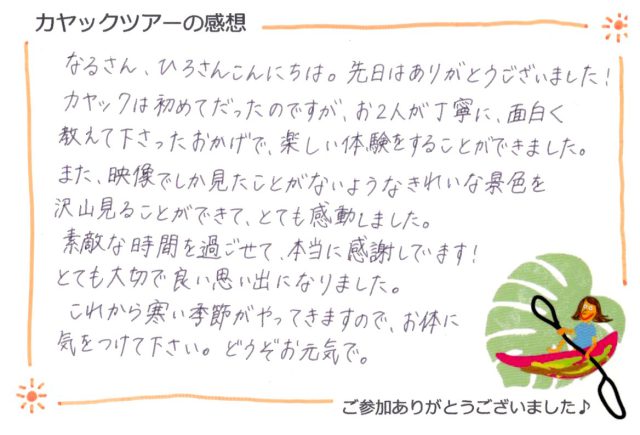 カヤックツアーの感想
なるさん、ひろさんこんにちは。先日はありがとうございました!
カヤックは初めてだったのですが、お2人が丁寧に、面白く
教えて下さったおかげで、楽しい体験をすることができました。
また、映像でしか見たことがないようなきれいな景色を
沢山見ることができて、とても感動しました。
素敵な時間を過ごせて、本当に感謝しています!
とても大切で良い思い出になりました。
これから寒い季節がやってきますので、お体に
気をつけて下さい。どうぞお元気で。
ご参加ありがとうございました♪